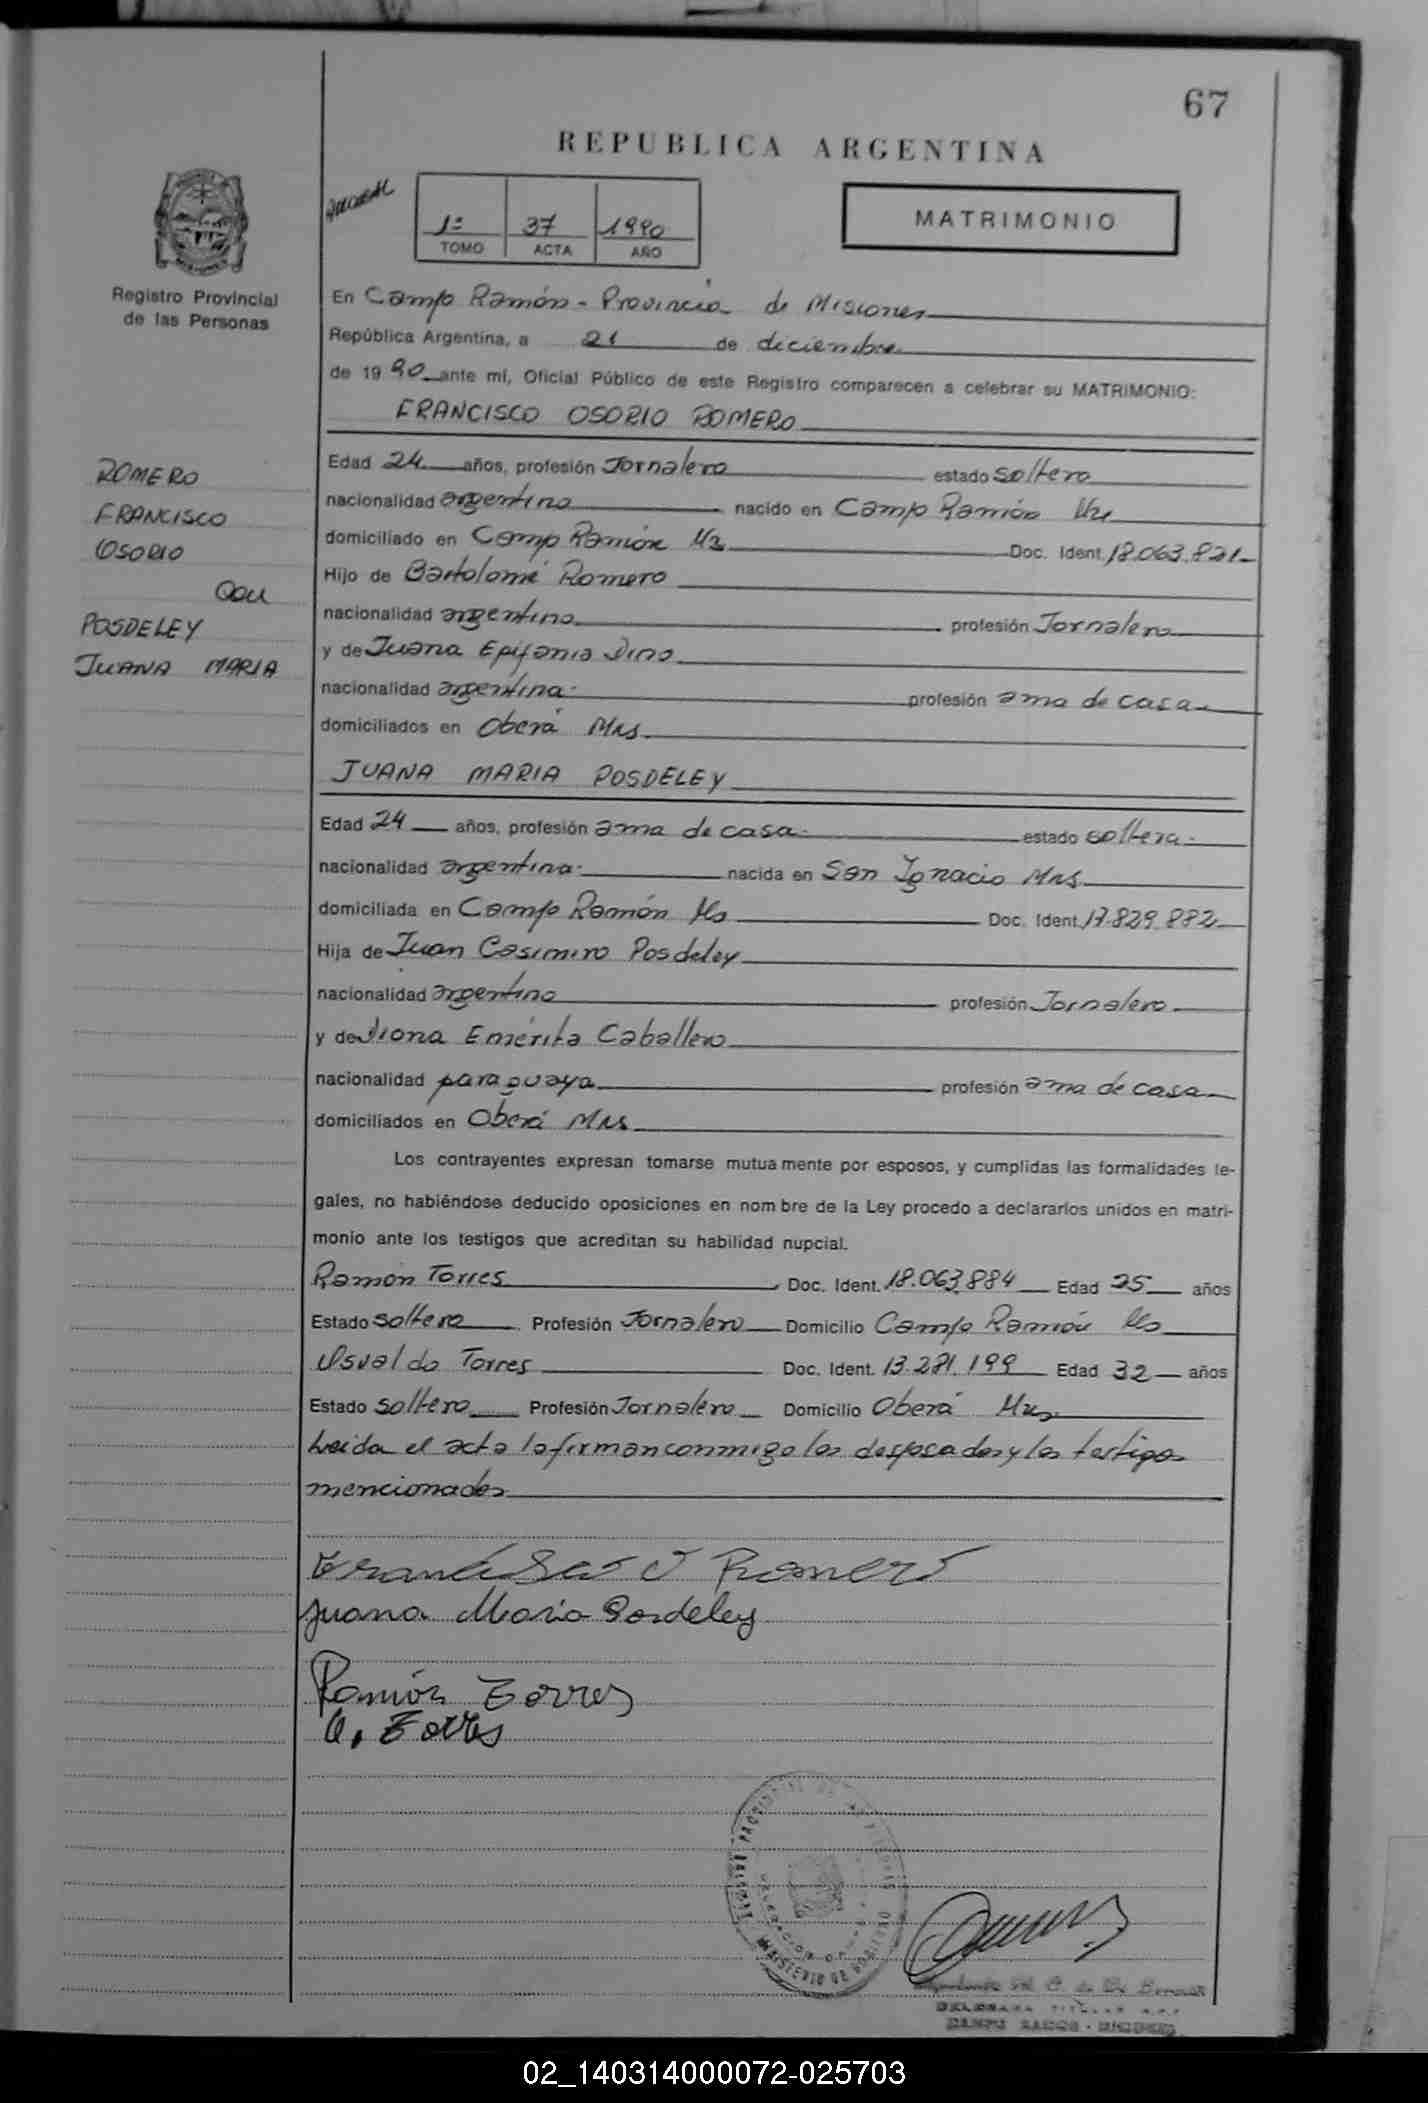 67
REPUBLICA ARGENTINA
1º 37 1990
TOMO ACTA AÑO
MATRIMONIO
Registro Provincial
de las Personas
En Campo Ramón - Provincia de Misiones
República Argentina, a 21 de diciembre
de 1990 ante mí, Oficial Público de este Registro comparecen a celebrar su MATRIMONIO:
FRANCISCO OSORIO ROMERO
ROMERO
FRANCISCO
OSORIO
con
POSDELEY
JUANA MARIA
Edad 24 años, profesión Jornalero estado soltero
nacionalidad argentino nacido en Campo Ramón
domiciliado en Campo Ramón Doc. Ident. 18.063.821
Hijo de Bartolomé Romero
nacionalidad argentino profesión Jornalero
y de Juana Epifania Dino
nacionalidad argentina profesión ama de casa
domiciliados en Oberá Mns
JUANA MARIA POSDELEY
Edad 24 años, profesión ama de casa estado soltera
nacionalidad argentina nacida en San Ignacio Mns
domiciliada en Campo Ramón Ms Doc. Ident. 17.829.882
Hija de Juan Casimiro Posdeley
nacionalidad argentino profesión Jornalero
y de Emérita Caballero
nacionalidad paraguaya profesión ama de casa
domiciliados en Oberá Mns
Los contrayentes expresan tomarse mutuamente por esposos, y cumplidas las formalidades le-
gales, no habiéndose deducido oposiciones en nombre de la Ley procedo a declararlos unidos en matri-
monio ante los testigos que acreditan su habilidad nupcial.
Ramón Torres Doc. Ident. 18.063.884 Edad 25 años
Estado soltero Profesión Jornalero Domicilio Campo Ramón Ms
Osvaldo Torres Doc. Ident. 13.281.199 Edad 32 años
Estado soltero Profesión Jornalero Domicilio Oberá Mns
Leida el acta la firman conmigo los desposados y los testigos
mencionados
Francisco O Romero
Juana Maria Posdeley
Ramón Torres
O. Torres
MINISTERIO DE GOBIERNO
CAMPO RAMON - MISIONES
02_140314000072-025703